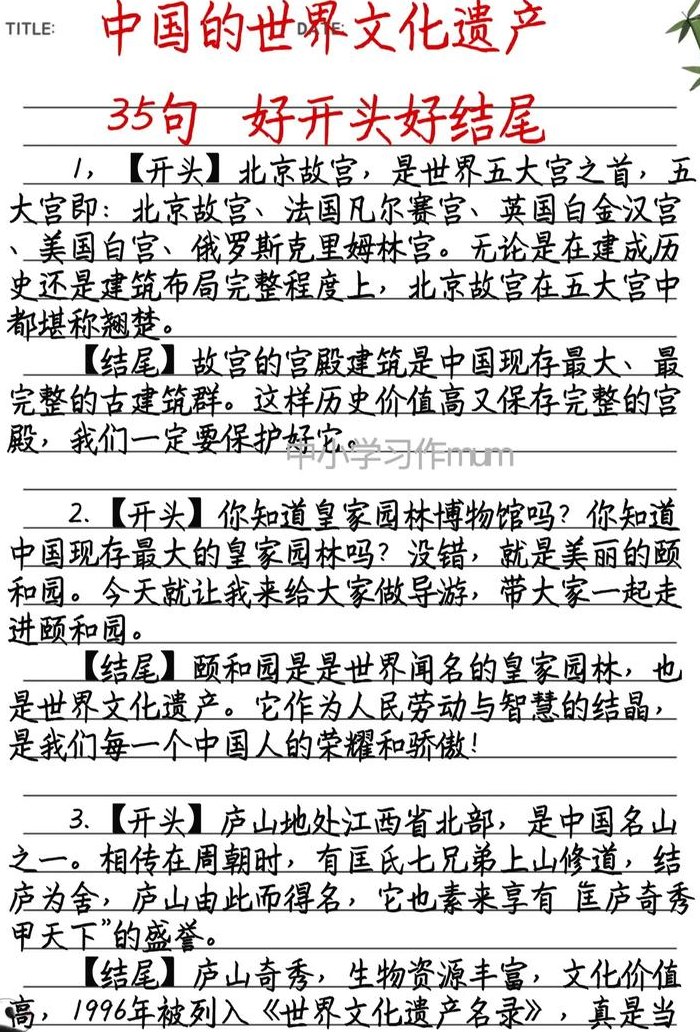 TITLE:
DATE:
中国的世界文化遗产
35句 好开头好结尾
1，【开头】北京故宫，是世界五大宫之首，五
大宫即：北京故宫、法国凡尔赛宫、英国白金汉宫
、美国白宫、俄罗斯克里姆林宫。无论是在建成历
史还是建筑布局完整程度上，北京故宫在五大宫中
都堪称翘楚。
【结尾】故宫的宫殿建筑是中国现存最大、最
完整的古建筑群。这样历史价值高又保存完整的宫
殿，我们一定要保护好它。
中小学习作mum
2.【开头】你知道皇家园林博物馆吗？你知道
中国现存最大的皇家园林吗？没错，就是美丽的颐
和园。今天就让我来给大家做导游，带大家一起走
进颐和园。
【结尾】颐和园是是世界闻名的皇家园林，也
是世界文化遗产。它作为人民劳动与智慧的结晶，
是我们每一个中国人的荣耀和骄傲！
3.【开头】庐山地处江西省北部，是中国名山
之一。相传在周朝时，有匡氏七兄弟上山修道，结
庐为舍，庐山由此而得名，它也素来享有 匡庐奇秀
甲天下”的盛誉。
【结尾】庐山奇秀，生物资源丰富，文化价值
高，1996年被列入《世界文化遗产名录》，真是当